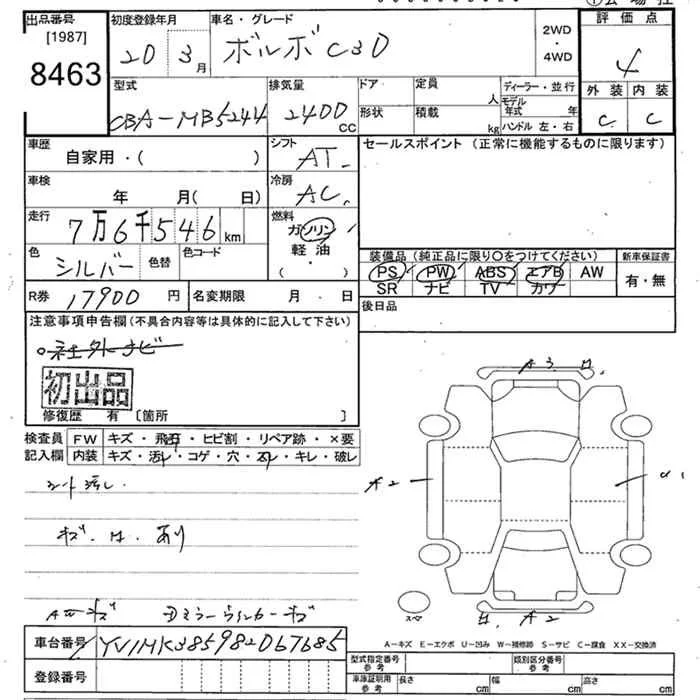 出品番号 [1987] 8463
初度登録年月 20 3月
車名・グレード ボルボC30
2WD・4WD
評価点 4
外装 内装
C C
型式 CBA-MB5244
排気量 2400 CC
ドア 形状
定員 人
積載 kg
ディーラー・並行
モデル年式 年
ハンドル 左・右
車歴 自家用・( )
シフト AT
セールスポイント (正常に機能するものに限ります)
車検 年 月( 日)
冷房 AC
走行 7万6千546km
燃料 ガソリン 軽油 ・( )・
色 シルバー 色替 色コード
装備品 (純正品に限り○をつけてください) 新車保証書
PS PW ABS エアB AW
SR ナビ TV カワ
有・無
R券 17900円 名変期限 月 日
後日品
注意事項申告欄(不具合内容等は具体的に記入して下さい)
社外ナビ
初出品
修復歴 有 [箇所 ]
検査員記入欄
FW キズ・飛石・ヒビ割・リペア跡・×要
内装 キズ・汚レ・コゲ・穴・スレ・キレ・破レ
シート汚し
キズ.凹.あり
A3 凹
A2
凹 A2
AWキズ
ミラーウィンカーキズ
スペ
A-キズ E-エクボ U-凹み W-補修跡 S-サビ C-腐食 XX-交換済
車台番号 YV1MK385982067685
登録番号
型式指定番号 参考
類別区分番号 参考
車庫証明用 参考 長さ cm 幅 cm 高さ cm